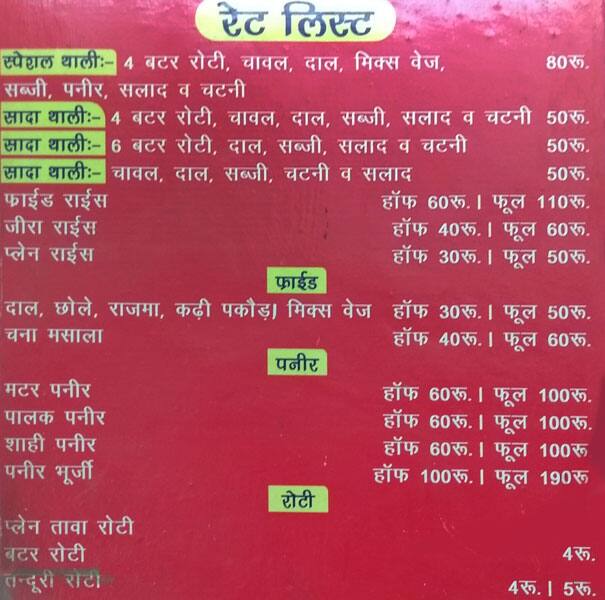 रेट लिस्ट
स्पेशल थालीः- 4 बटर रोटी, चावल, दाल, मिक्स वेज, 80रू.
सब्जी, पनीर, सलाद व चटनी
सादा थालीः- 4 बटर रोटी, चावल, दाल, सब्जी, सलाद व चटनी 50रू.
सादा थालीः- 6 बटर रोटी, दाल, सब्जी, सलाद व चटनी 50रू.
सादा थालीः- चावल, दाल, सब्जी, चटनी व सलाद 50रू.
फाईड राईस हॉफ 60रू.। फूल 110रू.
जीरा राईस हॉफ 40रू.। फूल 60रू.
प्लेन राईस हॉफ 30रू.। फूल 50रू.
फ्राईड
दाल, छोले, राजमा, कढ़ी पकौड़ा मिक्स वेज हॉफ 30रू.। फूल 50रू.
चना मसाला हॉफ 40रू.। फूल 60रू.
पनीर
मटर पनीर हॉफ 60रू.। फूल 100रू.
पालक पनीर हॉफ 60रू.। फूल 100रू.
शाही पनीर हॉफ 60रू.। फूल 100रू
पनीर भूर्जी हॉफ 100रू.। फूल 190रू
रोटी
प्लेन तावा रोटी
बटर रोटी 4रू.
तन्दूरी रोटी 4रू.। 5रू.